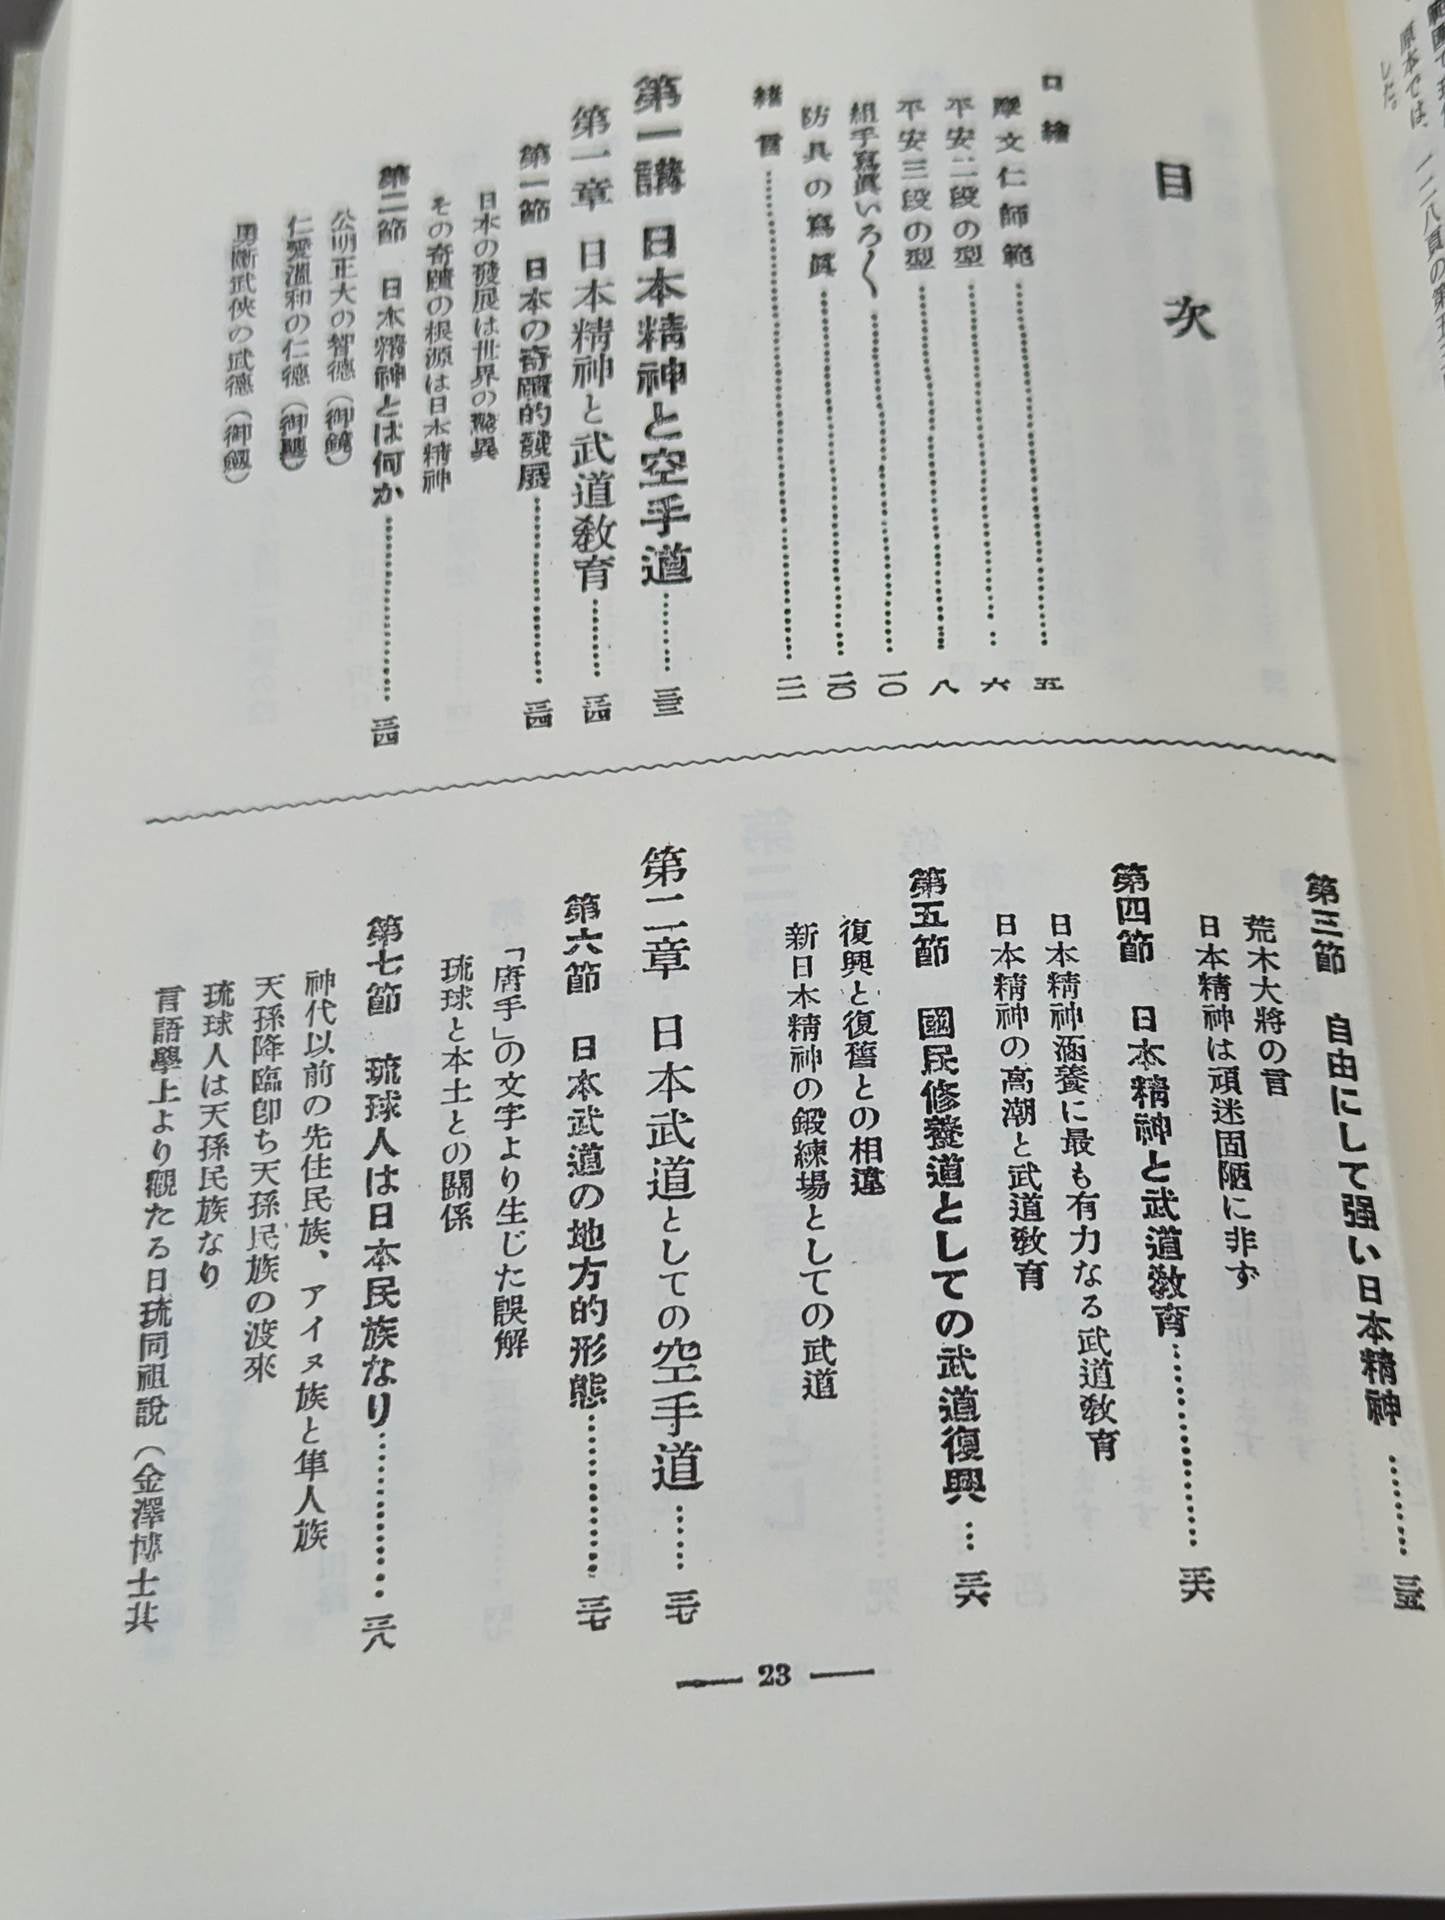 目次
口繪
摩文仁師範……五
平安二段の型……六
平安三段の型……八
組手寫眞いろ〱……一〇
防具の寫眞……二〇
緒言……二一
第一講 日本精神と空手道……三三
第一章 日本精神と武道教育……三四
第一節 日本の奇蹟的發展……三四
日本の發展は世界の驚異
その奇蹟の根源は日本精神
第二節 日本精神とは何か……三四
公明正大の智德(御鏡)
仁愛溫和の仁德(御璽)
勇斷武俠の武德(御劔)
第三節 自由にして强い日本精神……三五
荒木大將の言
日本精神は頑迷固陋に非ず
第四節 日本精神と武道教育……三六
日本精神涵養に最も有力なる武道教育
日本精神の高潮と武道教育
第五節 國民修養道としての武道復興…三六
復興と復舊との相違
新日本精神の鍛練場としての武道
第二章 日本武道としての空手道……三七
第六節 日本武道の地方的形態……三七
「唐手」の文字より生じた誤解
琉球と本土との關係
第七節 琉球人は日本民族なり……三八
神代以前の先住民族、アイヌ族と隼人族
天孫降臨卽ち天孫民族の渡來
琉球人は天孫民族なり
言語學上より觀たる日琉同祖說(金澤博士共
— 23 —
原本では、一二八頁の第
した。